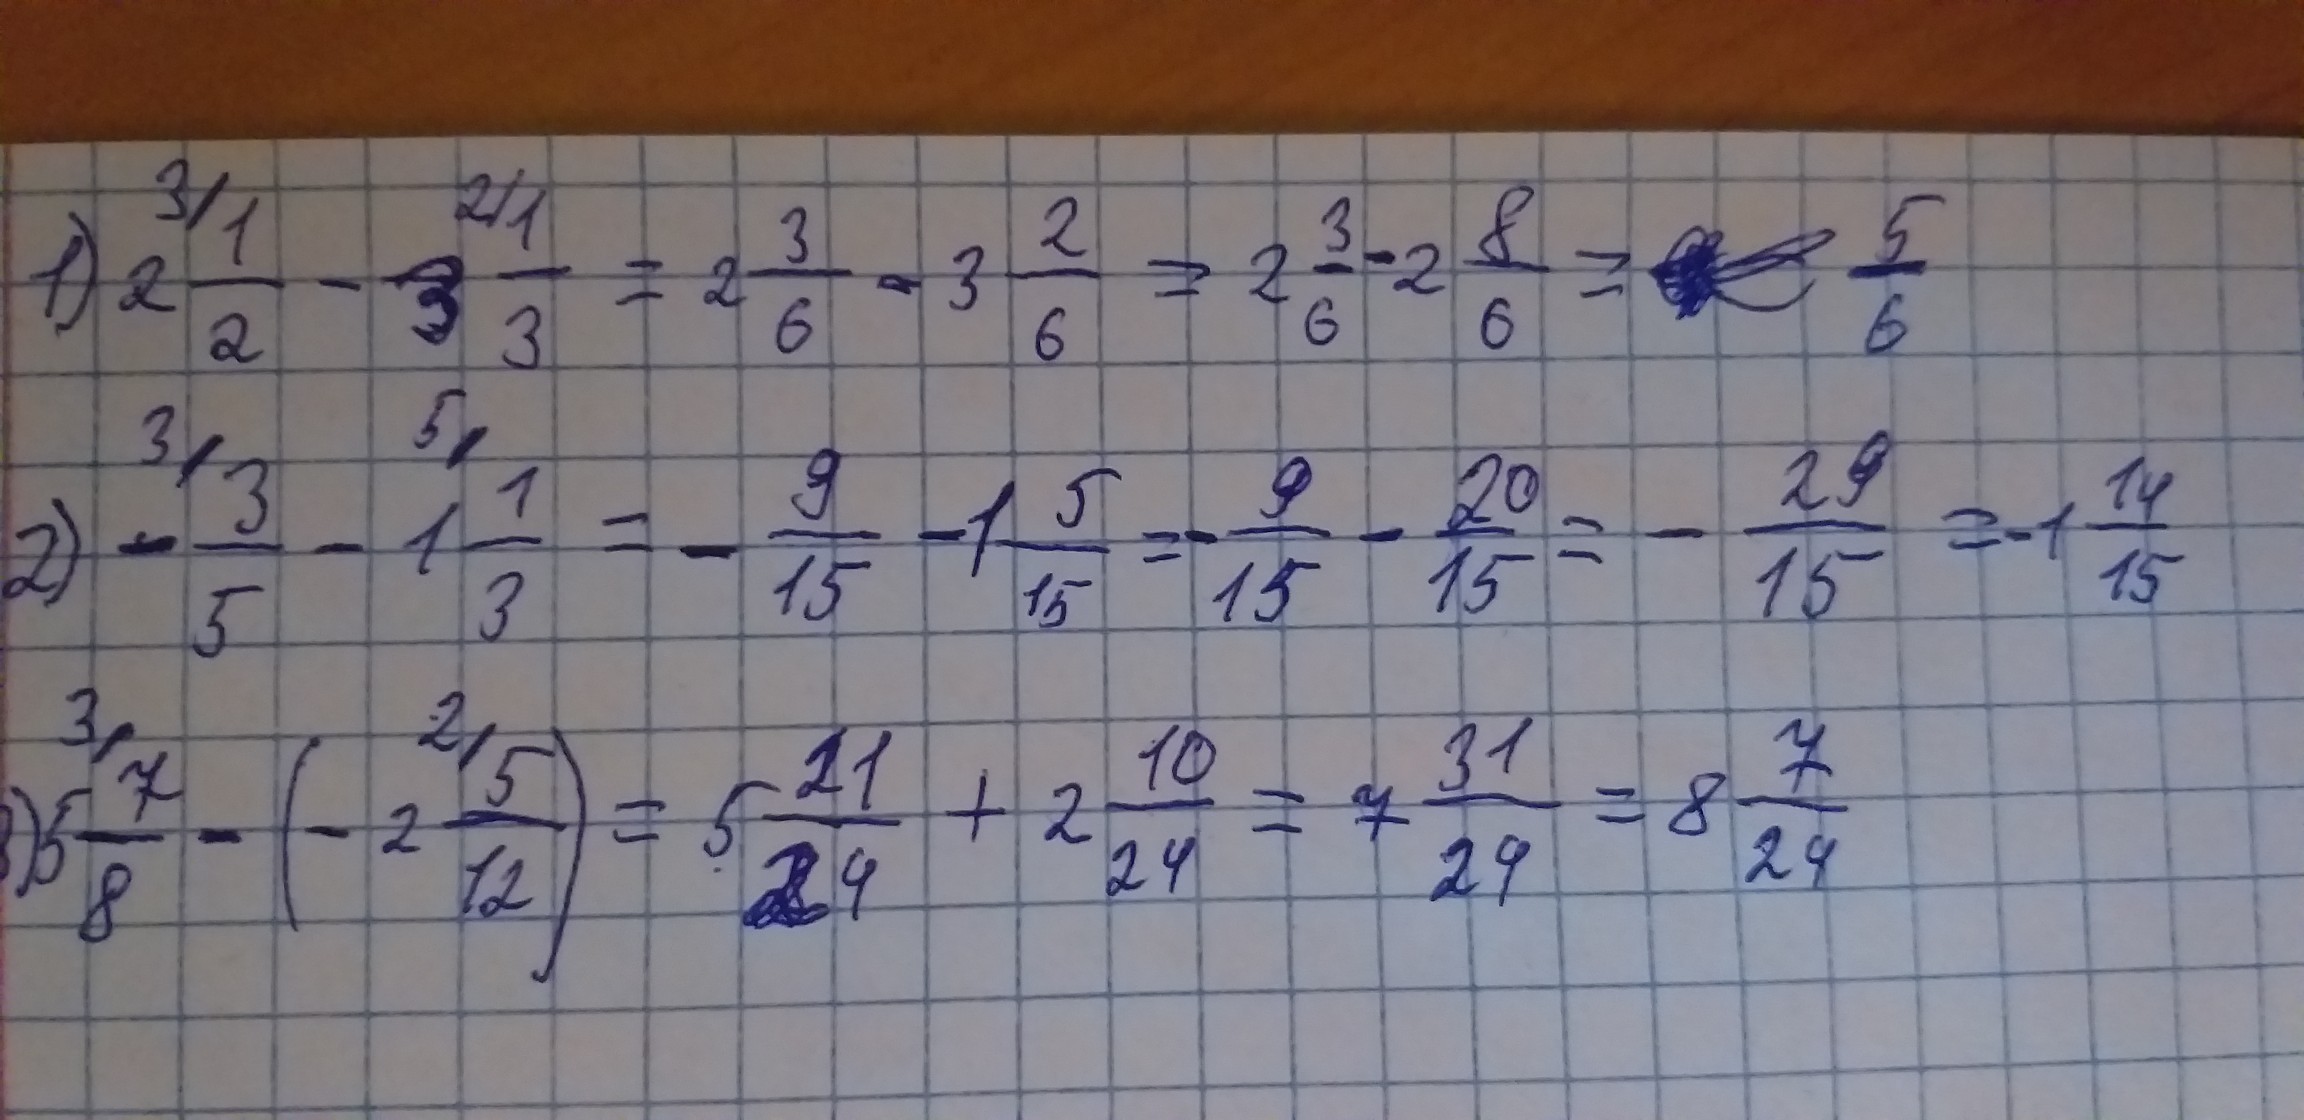 1) 2 3/1/2 - 3 2/1/3 = 2 3/6 - 3 2/6 = 2 3/6 - 2 8/6 = 5/6
2) - 3/3/5 - 1 5/1/3 = - 9/15 - 1 5/15 = - 9/15 - 20/15 = - 29/15 = -1 14/15
3) 5 3/7/8 - (- 2 2/5/12) = 5 21/24 + 2 10/24 = 7 31/24 = 8 7/24